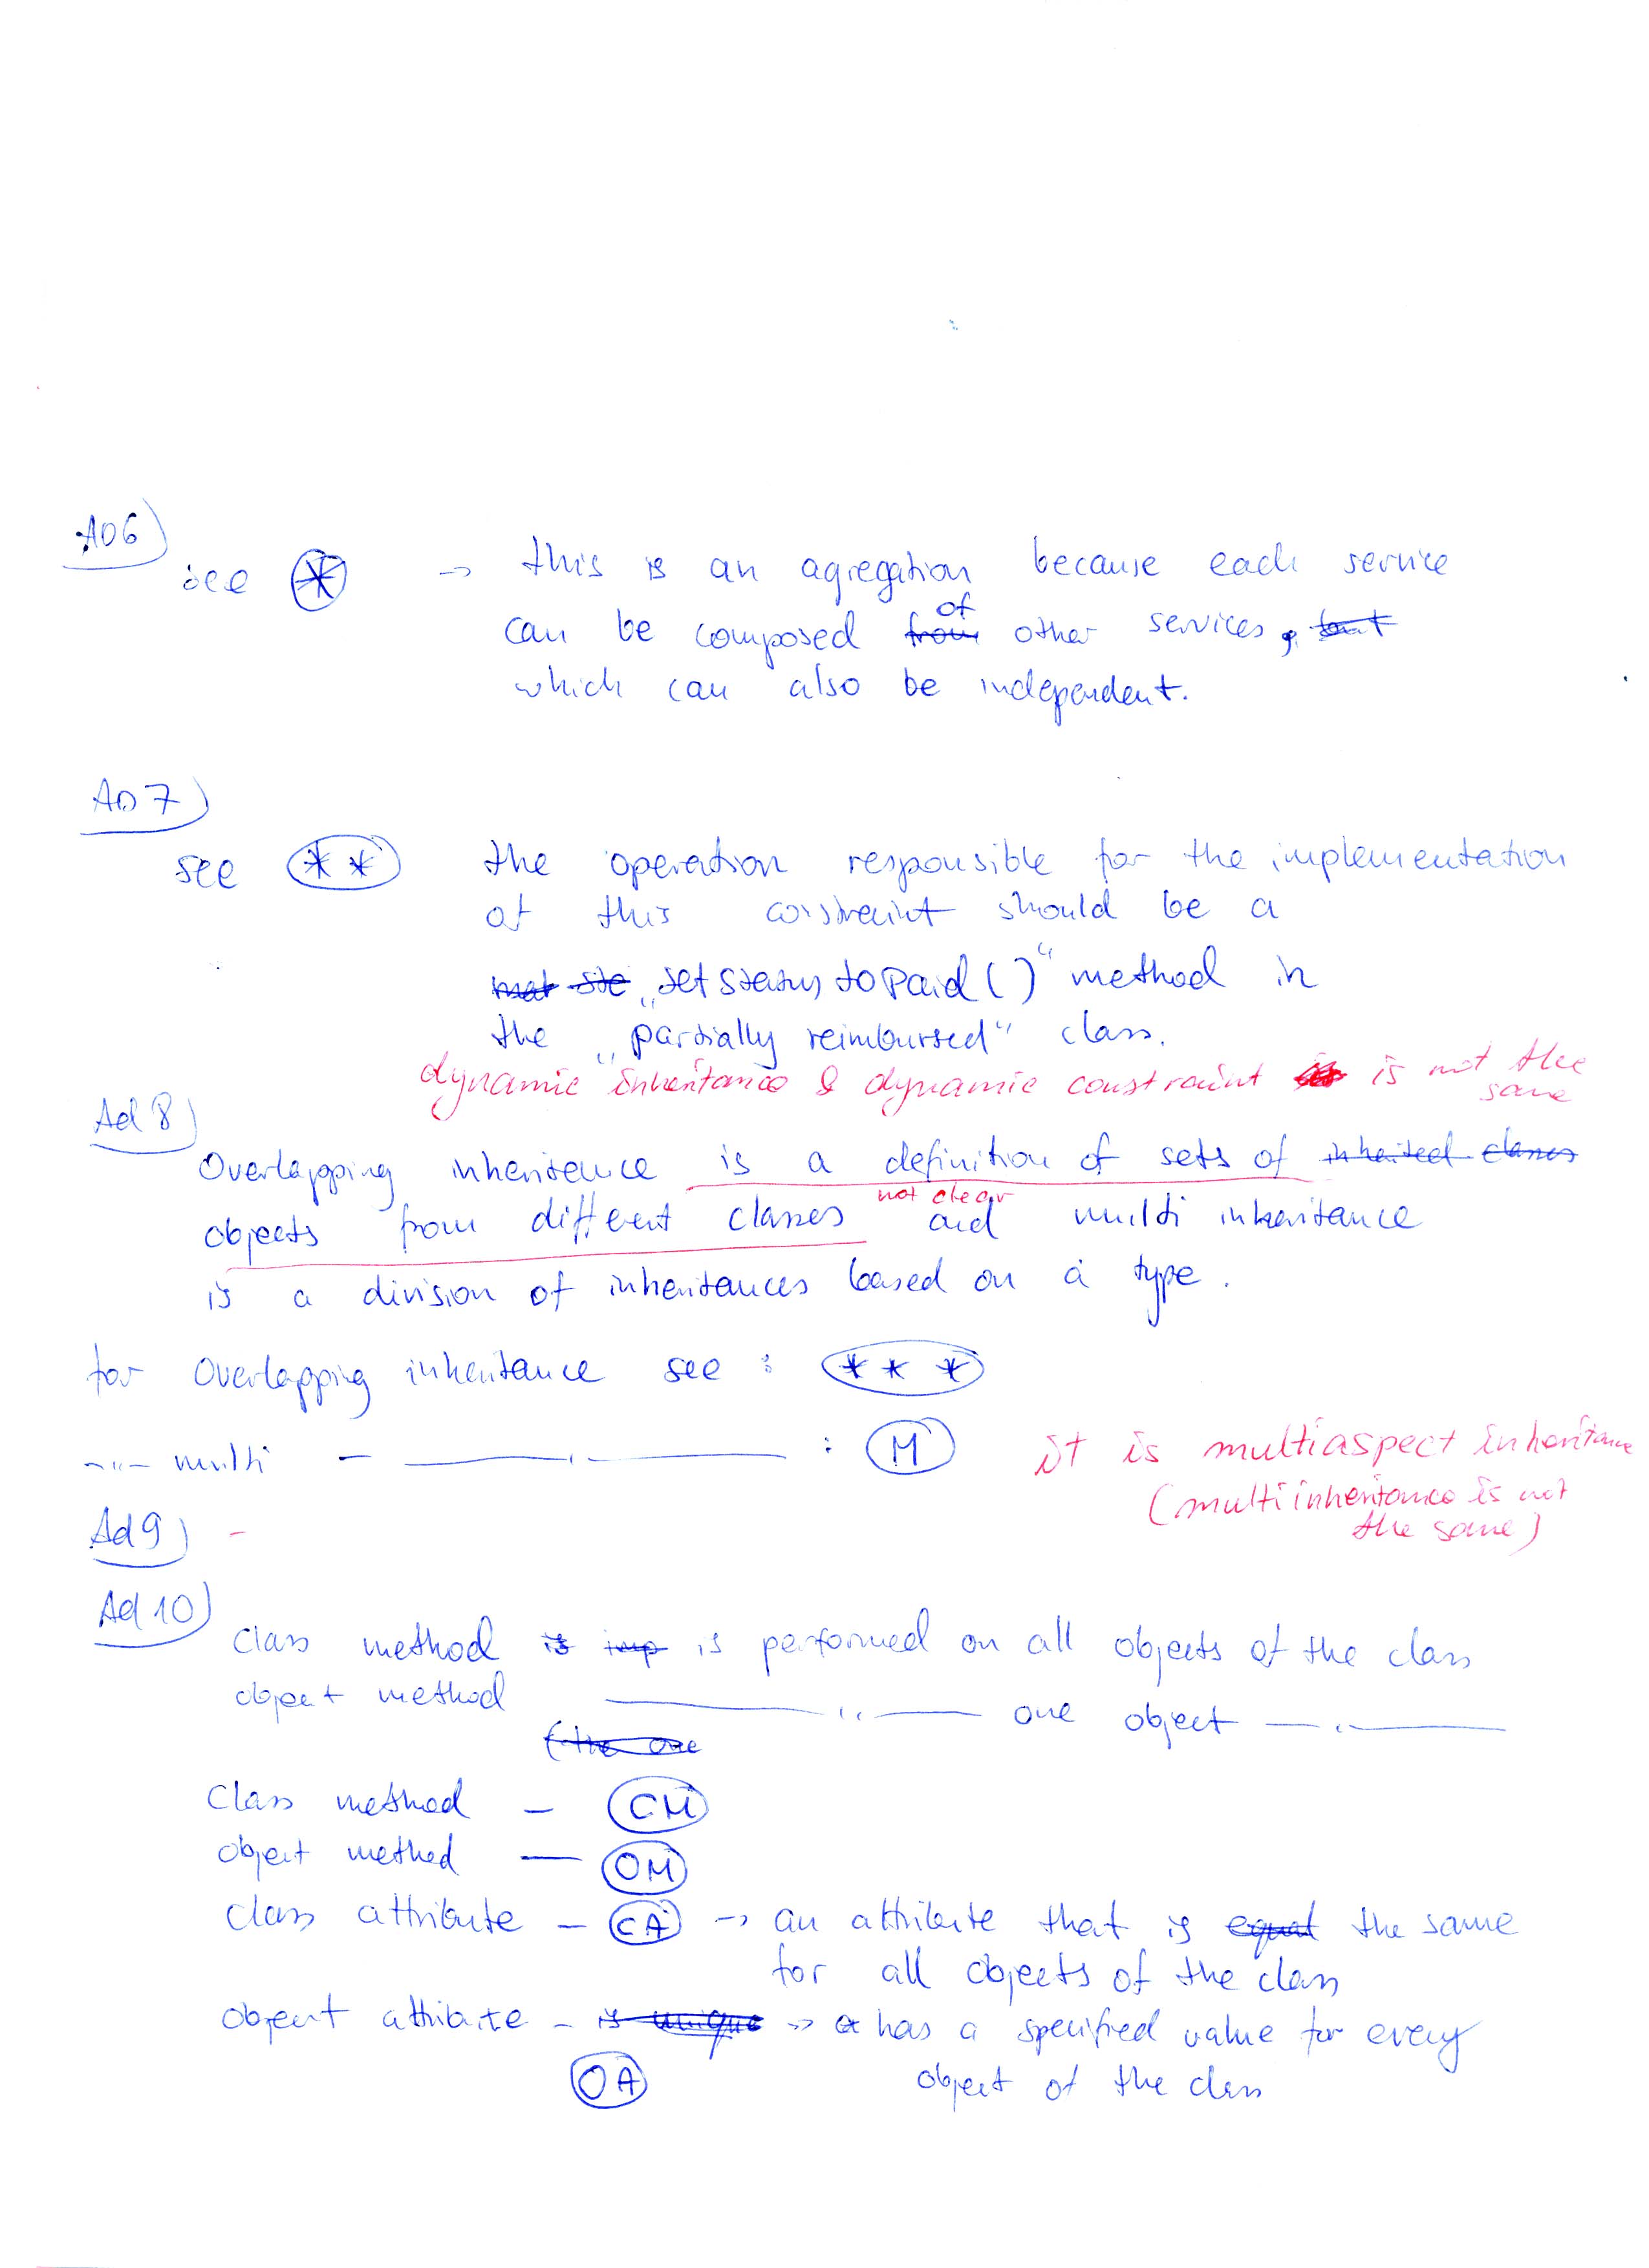 AD6)
see * -> this is an agregation because each service
can be composed from of other services, but
which can also be independent.
AD7)
see ** the operation responsible for the implementation
of this constraint should be a
„set Status to Paid ( )“ method in
the „partially reimbursed“ class.
dynamic inheritance & dynamic constraint is not the
same
Ad 8)
Overlapping inheritence is a definition of sets of inherited classes
not clear
objects from different classes and multi inheritance
is a division of inheritances based on a type.
for Overlapping inheritance see : ***
-"- multi — —"— : M it is multiaspect inheritance
(multiinheritance is not
the same)
Ad 9) -
Ad 10)
class method is imp is performed on all objects of the class
object method —"— one object —"—
(the one
Class method - CM
object method — OM
class attribute - CA -> an attribute that is equal the same
for all objects of the class
object attribute - is unique -> has a specified value for every
OA object of the class